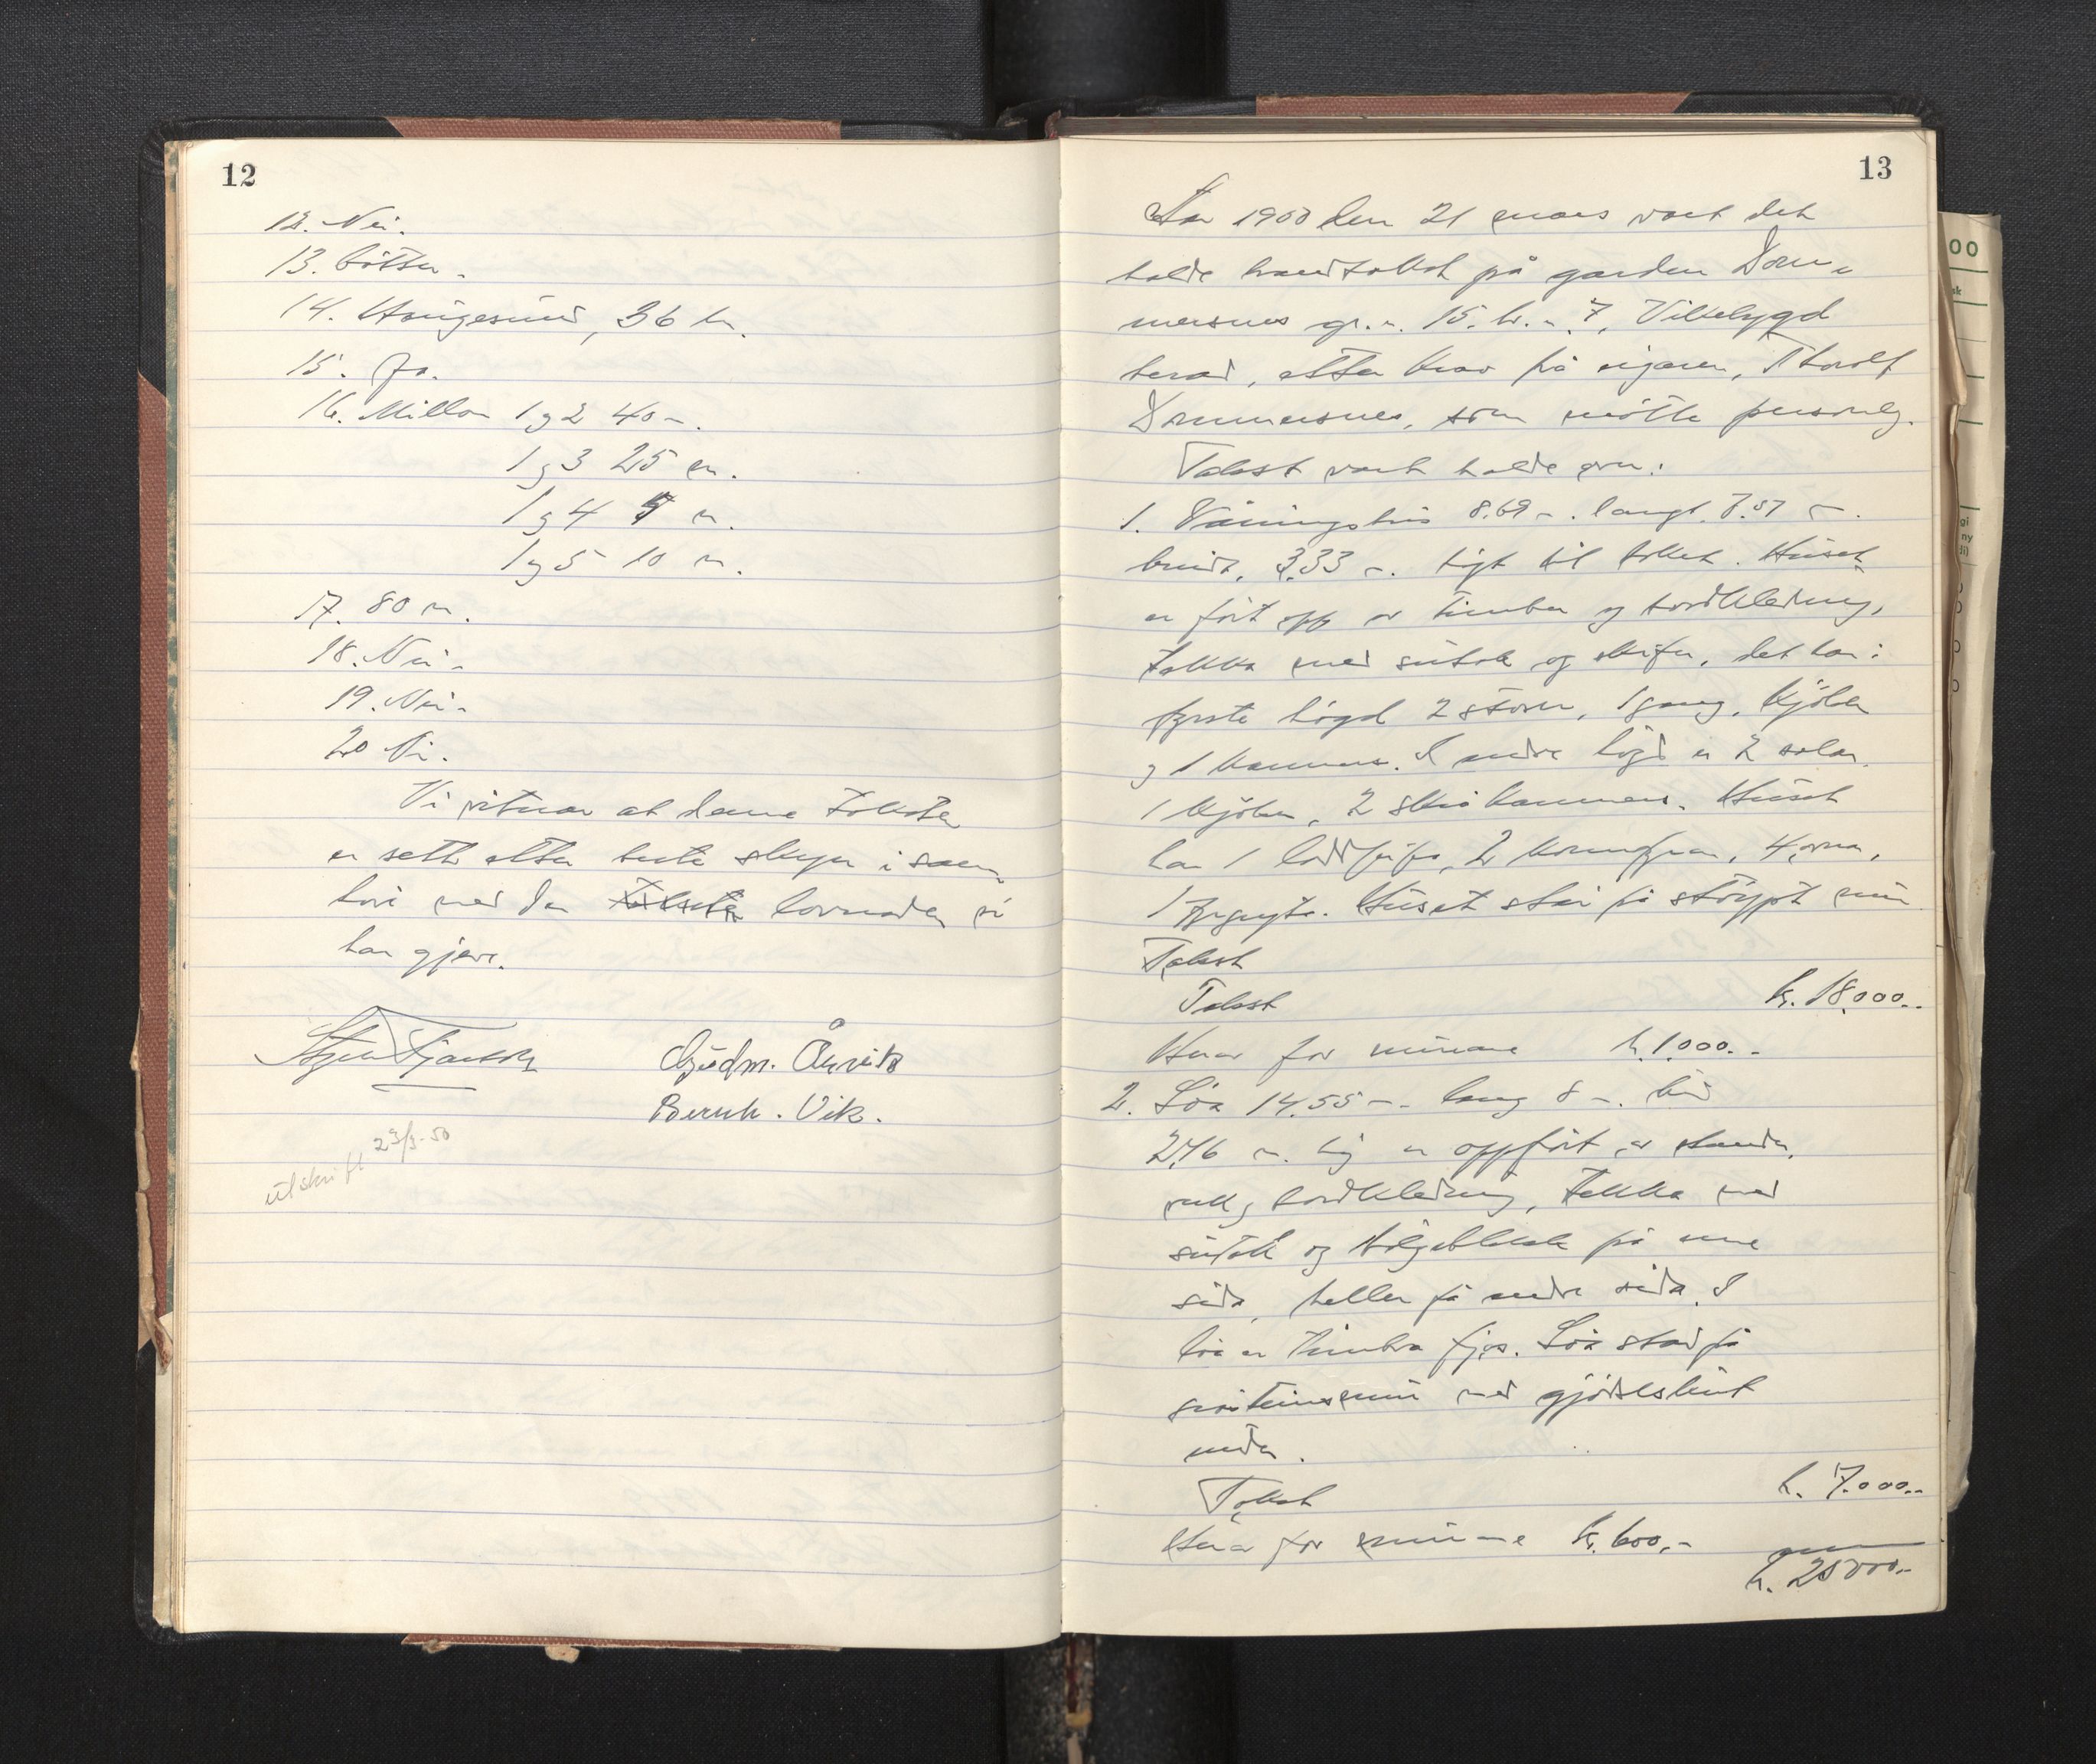 12
12. Nei.
13. bøtter.
14. Haugesund, 36 km.
15. Ja.
16. Millom 1 og 2 40 m.
1 og 3 25 m.
1 og 4 m.
1 og 5 10 m.
17. 80 m.
18. Nei.
19. Nei.
20 Nei.
Vi vitnar at denne taksten
er sett etter beste skyn i sam-
høve med den lovnaden vi
har gjeve.
Gudm. Åkvik
Bernh. Vik.
utskrift 23/3-50
13
År 1950 den 21 mars vart det
halde brandtakst på garden Dom-
mersnes gr.n. 15. br.n. 7, Vikebygd
herad, etter krav frå eigaren, Thorolf
Dommersnes, som møtte personleg.
Takst vart halde over:
1. Våningshus 8.69 m. langt. 7.57 m.
breidt, 3.33 m. høgt til taket. Huset
er ført opp av timber og bordkledning,
tekka med sutak og skifer, det har i
fyrste høgd 2 stover, 1 gang, kjøken
og 1 kammers. I andre høgd er 2 salar,
1 kjøken, 2 skråkammers. Huset
har 1 loddpipe, 2 komfyrar, 4 omnar,
1 . Huset står på støypt mur
Takst
Takst kr. 18.000.-
Herav for murane kr. 1.000.-
2. Løa 14.55 m. lang 8 m. brei
2.46 m. høg er oppført av stender,
verk og bordkledning, tekka med
sutak og bølgeblekk på eine
sida, heller på andre sida. I
løa er timbra fjøs. Løa står på
gråsteinsmur med gjødselshut
under.
Takst kr. 7.000.-
Herav for murane kr. 600.-
kr. 25000.-